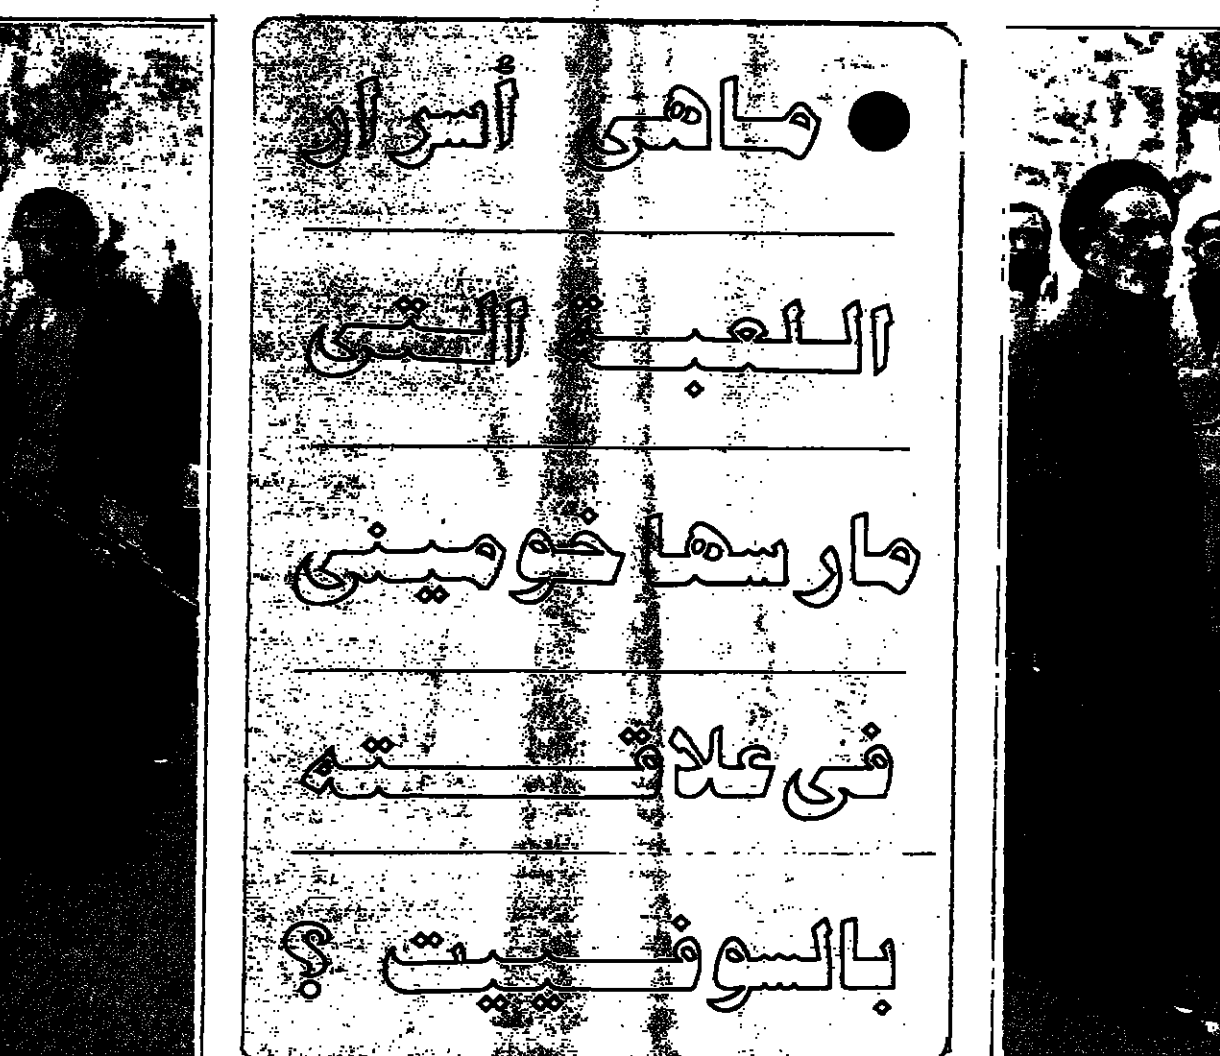 ● ماهى أسرار
اللعبة التى
مارسها خومينى
فى علاقته
بالسوفييت ؟